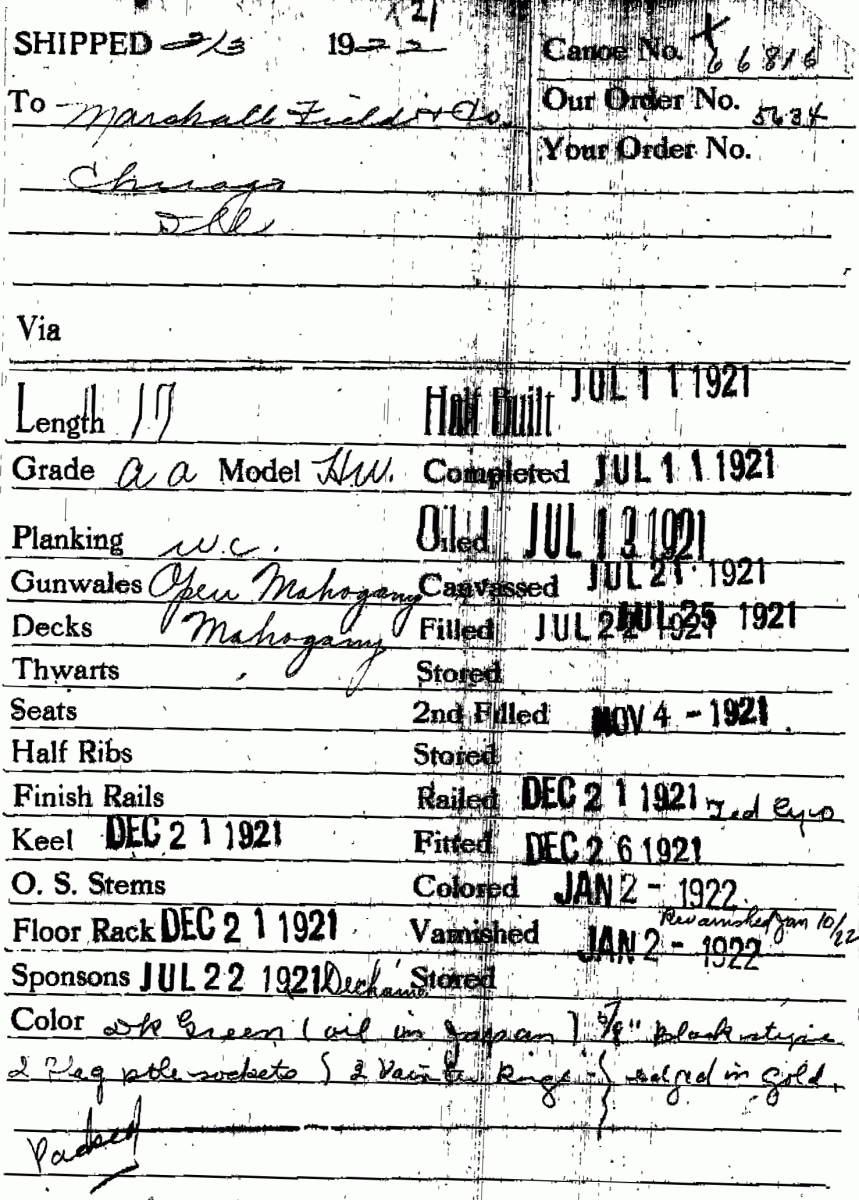 21
SHIPPED 2/3 1922
Canoe No. 66816
To Marshall Field & Co.
Our Order No. 5634
Your Order No.
Chicago
Ill
Via
Length 17 Half Built JUL 11 1921
Grade a a Model HW. Completed JUL 11 1921
Planking w.c. Oiled JUL 13 1921
Gunwales Open Mahogany Canvassed JUL 21 1921
Decks Mahogany Filled JUL 22 1921 JUL 25 1921
Thwarts Stored
Seats 2nd Filled NOV 4 - 1921
Half Ribs Stored
Finish Rails Railed DEC 21 1921 Ted
Keel DEC 21 1921 Fitted DEC 26 1921
O. S. Stems Colored JAN 2 - 1922
Revarnished Jan 10/22
Floor Rack DEC 21 1921 Varnished JAN 2 - 1922
Sponsons JUL 22 1921 Stored
Color Dk Green (oil in Japan) 5/8" black stripe
2 Flag pole sockets } 2 Rings - } edged in gold.
Packed